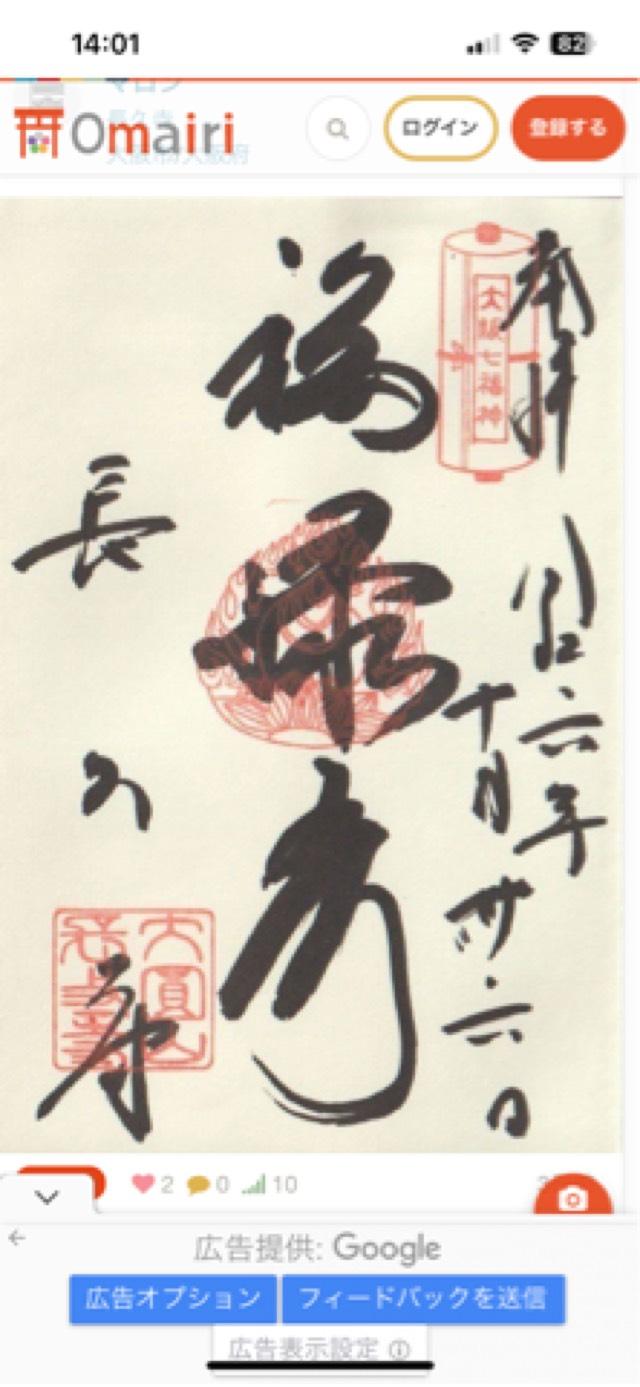 14:01
82
マロン
長久寺
大阪市/大阪府
Omairi
ログイン
登録する
奉拝
大阪七福神
令和六年
十月廿六日
福禄寿
長久寺
大圓山
2
0
10
広告提供: Google
広告オプション
フィードバックを送信
広告表示設定